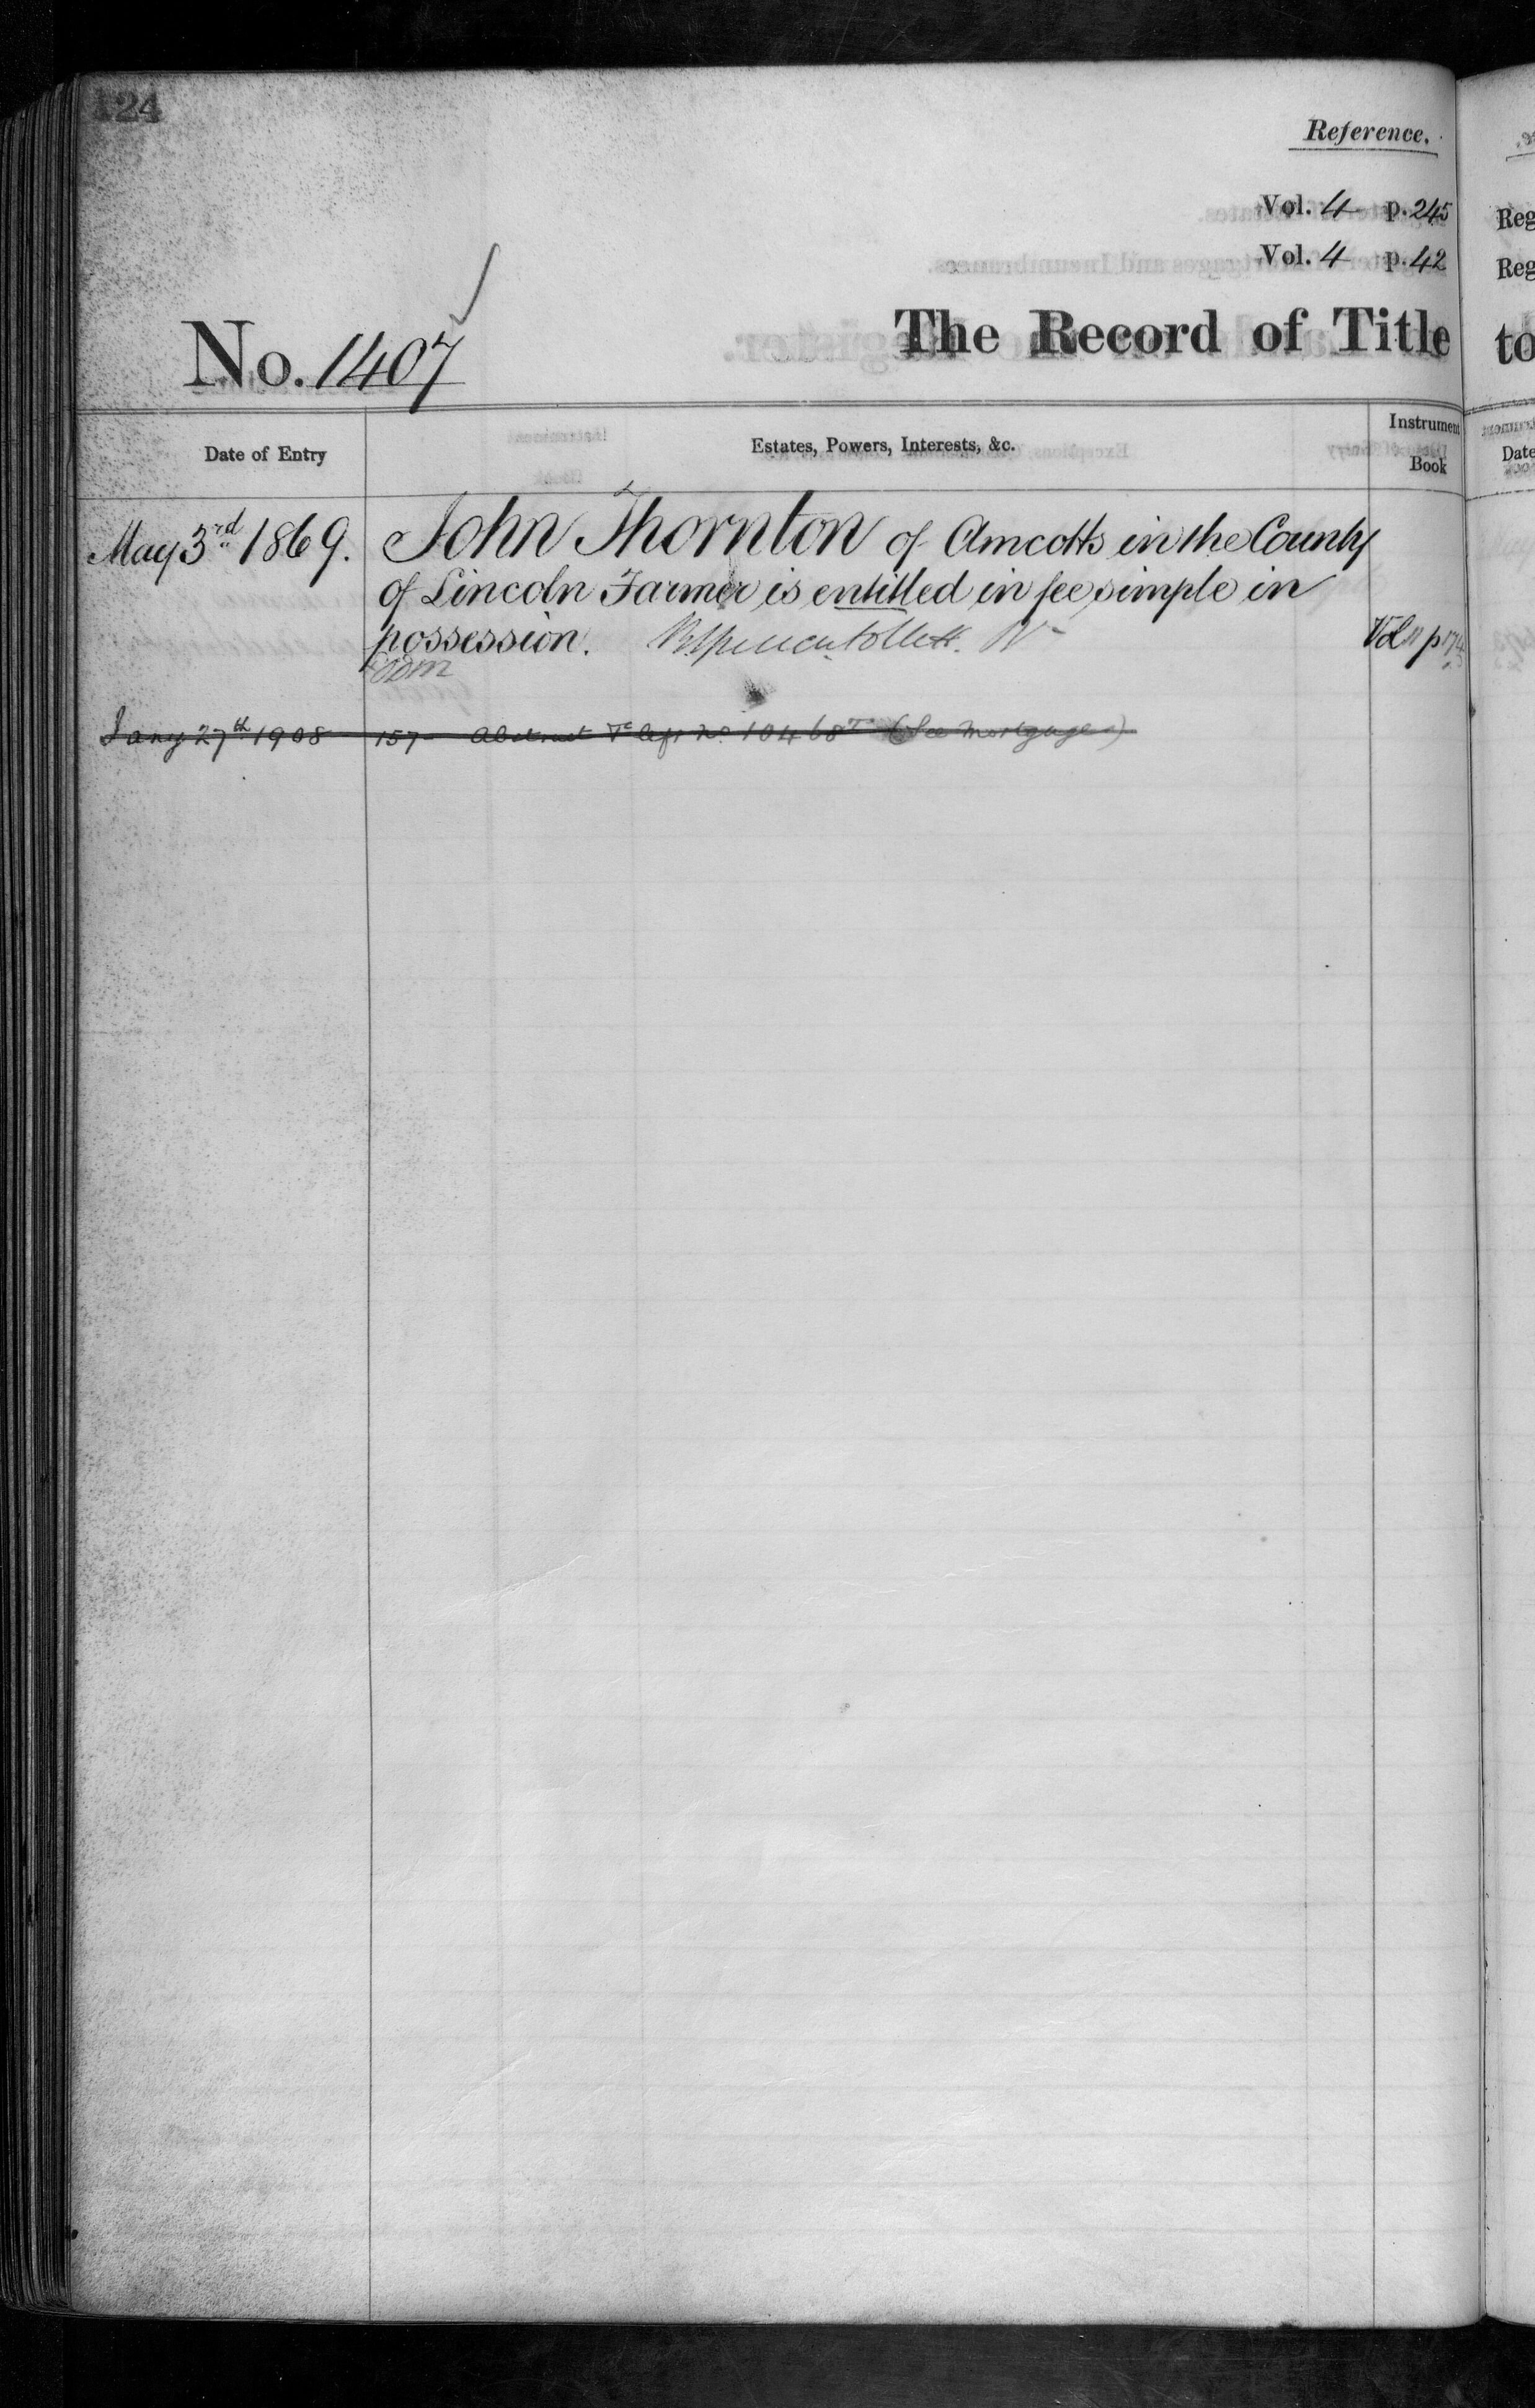 124
Reference.
Vol. 4 p. 245
Vol. 4 p. 42
No. 1407
The Record of Title
Date of Entry
Estates, Powers, Interests, &c.
Instrument
Book
May 3rd 1869.
John Thornton of Amcotts in the County
of Lincoln Farmer is entitled in fee simple in
possession.
Vol 11 p 174
Jany 27th 1908 157 Abstract No 10468 (See Mortgages)
Reg
Reg
to
Date